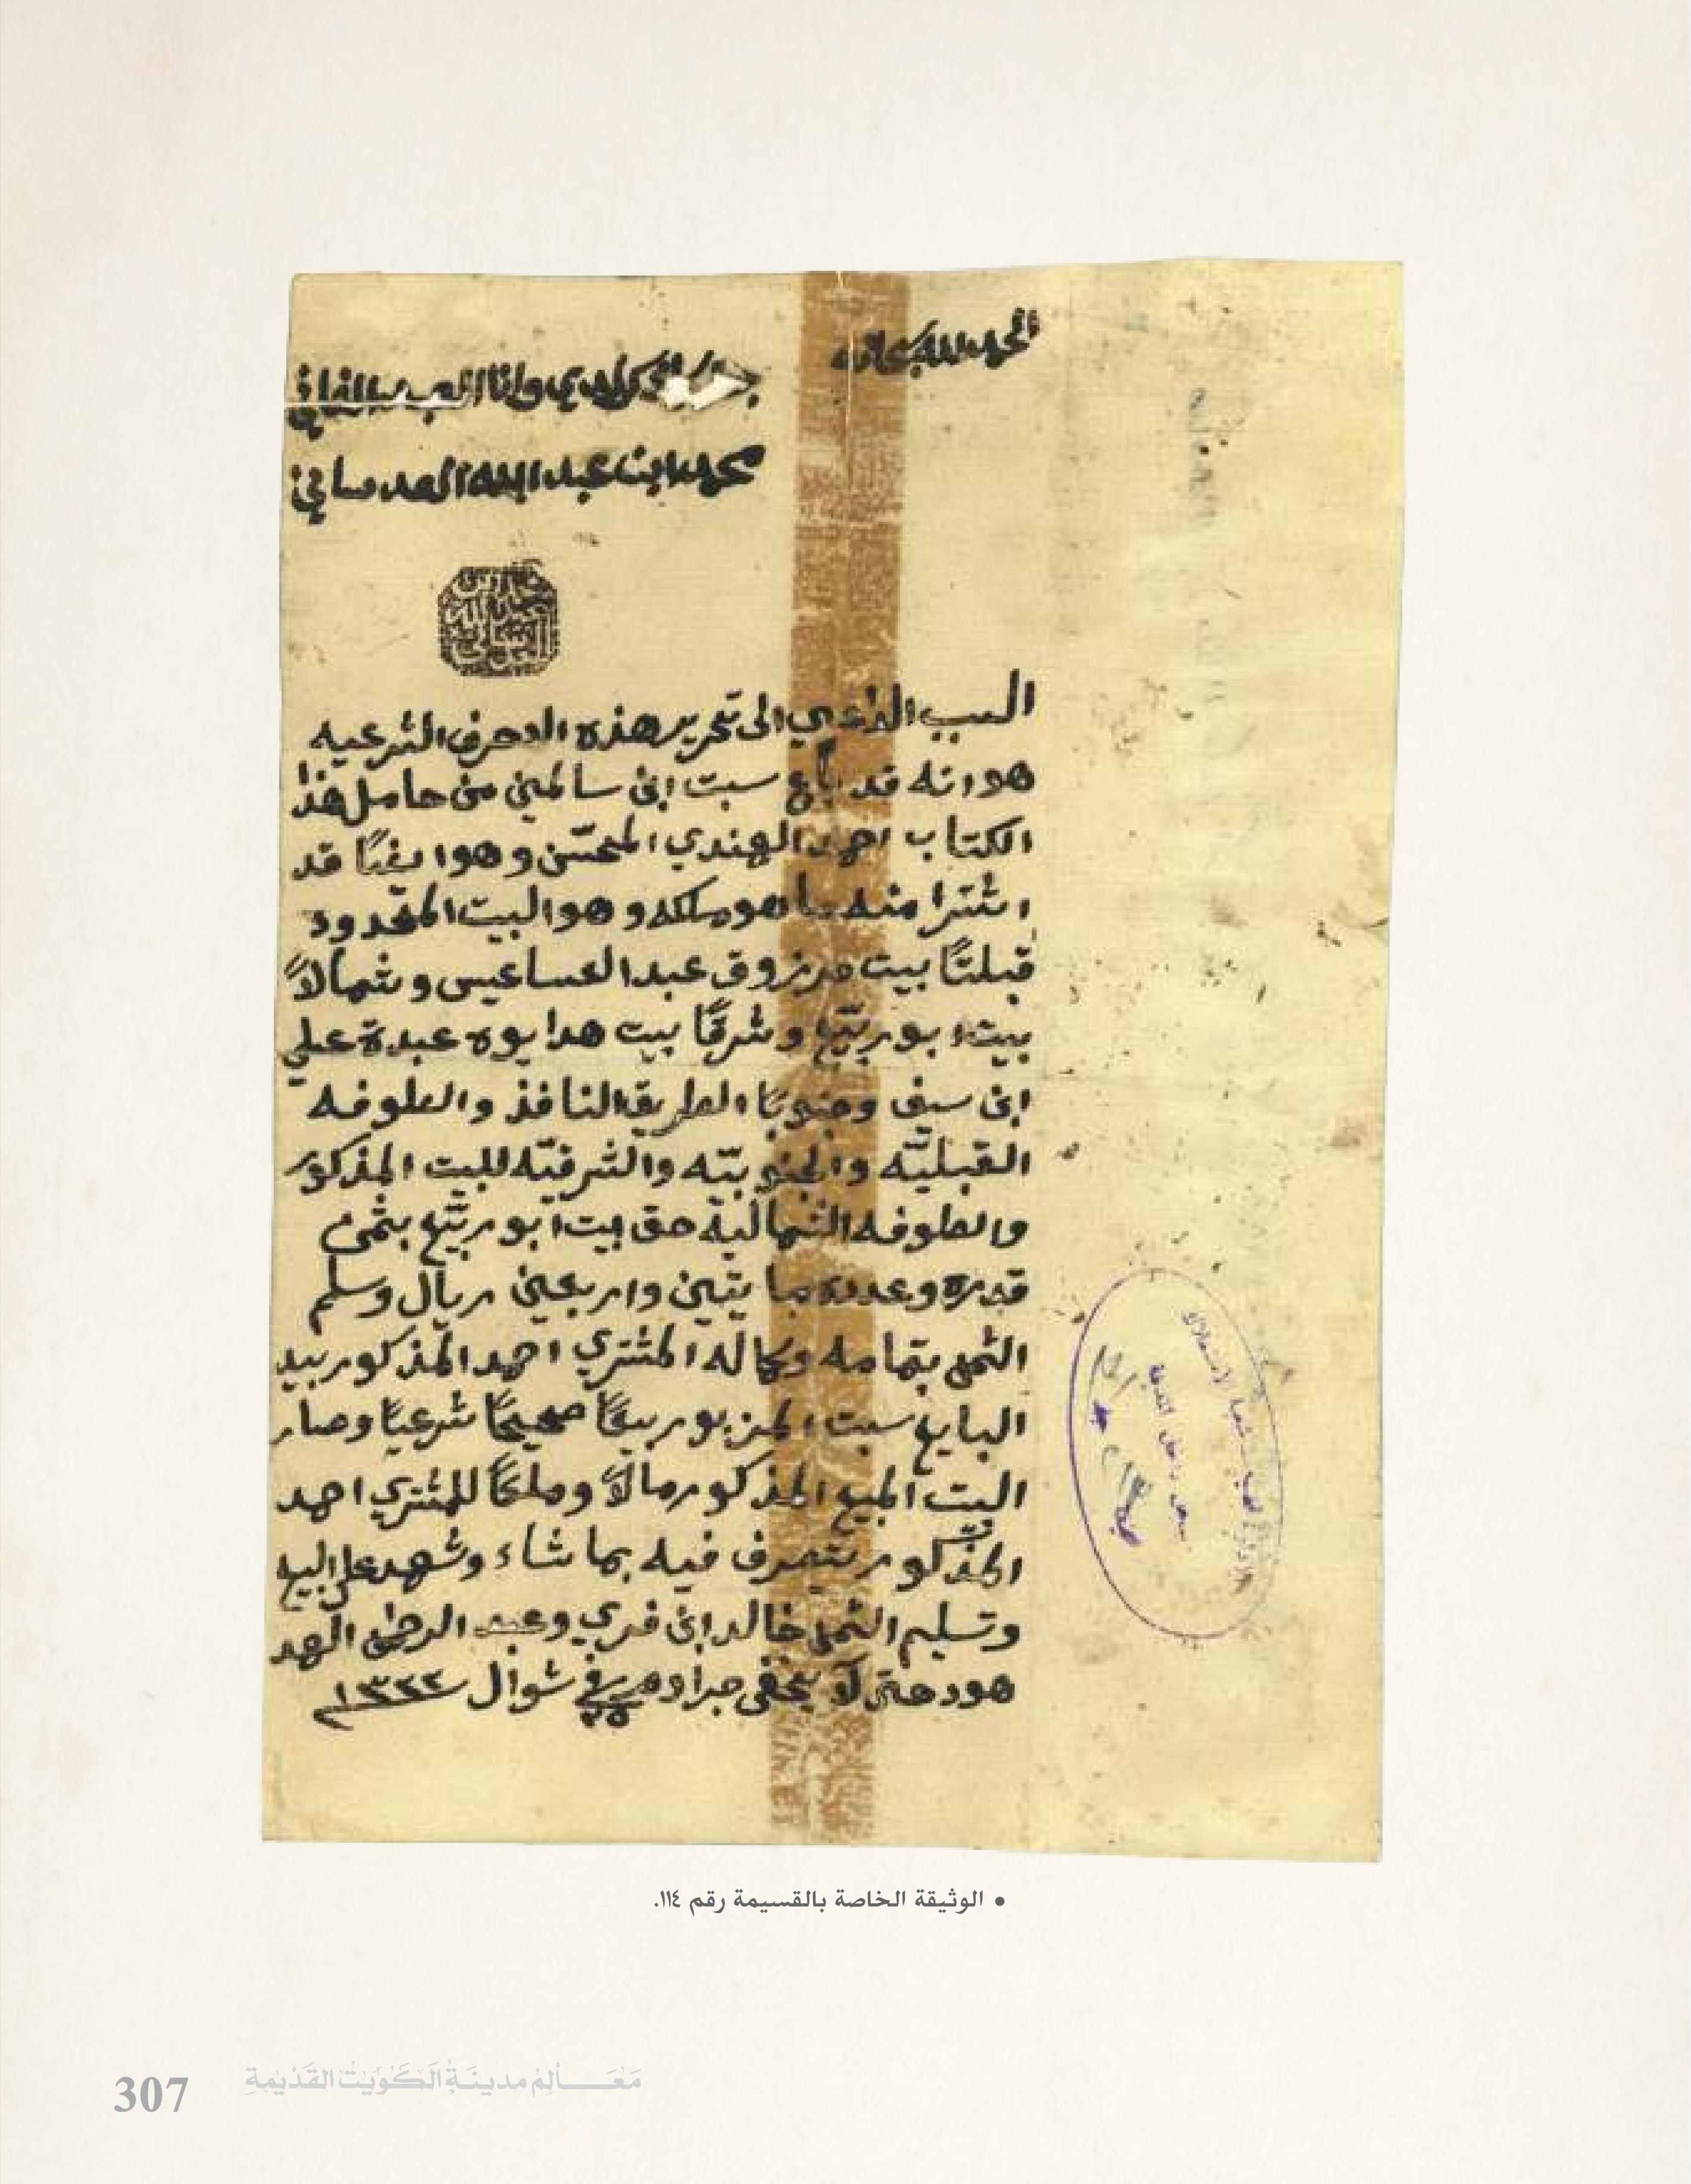 الحمد لله سبحانه
جرى لدي وانا العبد الفاني
محمد ابن عبد الله العدساني
السبب الداعي الى تحرير هذه الاحرف الشرعيه
هو انه قد باع سبت ابن سالمين من حامل هذا
الكتاب احمد الهندي المحسّن وهو ايضًا قد
اشترا منه ما هو ملكه وهو البيت المحدود
قبلتًا بيت مرزوق عبد العساعيس وشمالاً
بيت ابو ربيّع وشرقًا بيت هدايوه عبدة علي
ابن سيف وجنوبًا الطريق النافذ والطوفه
القبليّه والجنوبيّه والشرقيّه للبيت المذكور
والطوفه الشماليّه حق بيت ابو ربيّع بثمن
قدره وعدده مايتين واربعين ريال وسلم
الثمن بتمامه وكماله المشتري احمد المذكور بيد
البايع سبت المزبور بيعًا صحيحًا شرعيًا وصار
البيت المبيع المذكور مالاً وملكًا للمشتري احمد
المذكور يتصرف فيه بما شاء وشهد على البيع
وتسليم الثمن خالد ابن فري وعبد الرحمن الهد
هود حتى لا يخفى جرا وصح في شوال ١٣٢٢
• الوثيقة الخاصة بالقسيمة رقم ١١٤.
مَعَالِم مدينَة الكُوَيت القَديمة
307